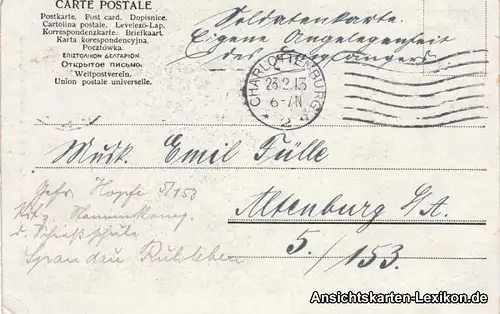 CARTE POSTALE
Postkarte. Post card. Dopisnice.
Cartolina postale. Levelező-Lap.
Korrespondenzkarte. Briefkaart.
Karta korespondencyjna.
Pocztówka.
ΕΠΙΣΤΟΛΙΚΟΝ ΔΕΛΤΑΡΙΟΝ.
Открытое письмо.
Weltpostverein.
Union postale universelle.
Soldatenkarte.
Eigene Angelegenheit
des Empfängers.
CHARLOTTENBURG
23.2.15
6-7N
* 2
Musk. Emil Fülle
Altenburg S/A.
5./153.
Gefr. Hopfe 5/153
d. Schießschule
Spandau Ruhleben
Ansichtskarten-Lexikon.de